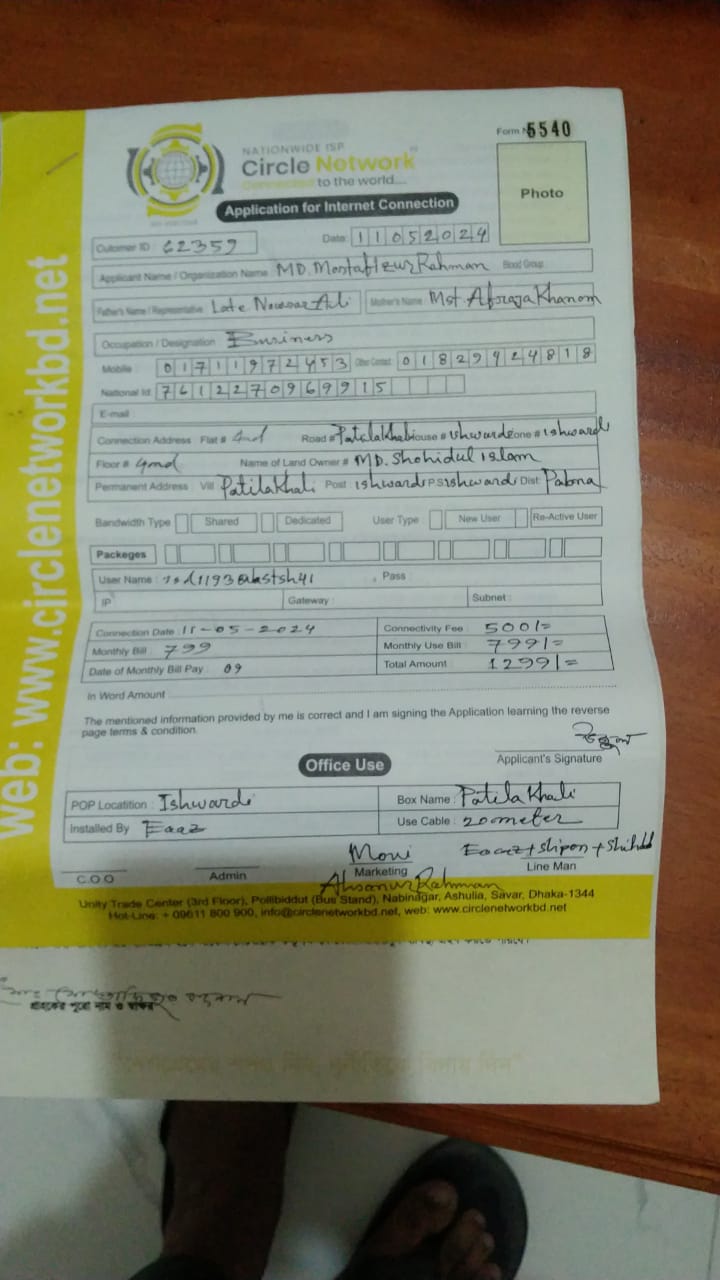 Form No 5540
NATIONWIDE ISP
Circle Network
Connected to the world....
Photo
Application for Internet Connection
Cutomer ID : 62359
Date: 11052024
Applicant Name / Organization Name MD. Mostafizur Rahman Blood Group :
Father's Name / Representative Late Ali Mother's Name Mst. Khanom
Occupation / Designation Business
Mobile : 01711972453 Other Contact 01829424818
National Id: 7612270969915
E-mail
Connection Address Flat # Road # Patilakhali House # Ishwardi Zone # Ishwardi
Floor # Name of Land Owner # MD. Shohidul islam
Permanent Address Vill Patilakhali Post ishwardi P.S ishwardi Dist: Pabna
Bandwidth Type Shared Dedicated User Type New User Re-Active User
Packeges
User Name : Pass :
IP Gateway : Subnet :
Connection Date : 11-05-2024 Connectivity Fee : 500/=
Monthly Bill : 799 Monthly Use Bill : 799/=
Date of Monthly Bill Pay : 09 Total Amount : 1299/=
In Word Amount
The mentioned information provided by me is correct and I am signing the Application learning the reverse
page terms & condition.
Applicant's Signature
Office Use
POP Locatition : Ishwardi Box Name : Patilakhali
Installed By Eaaz Use Cable : 20 meter
Moni Eaaz + Shipon +
C.O.O Admin Marketing Line Man
Ahsanur Rahman
Unity Trade Center (3rd Floor), Pollibiddut (Bus Stand), Nabinagar, Ashulia, Savar, Dhaka-1344
Hot-Line: + 09611 800 900, info@circlenetworkbd.net, web: www.circlenetworkbd.net
web: www.circlenetworkbd.net
গ্রাহকের পুরো নাম ও স্বাক্ষর